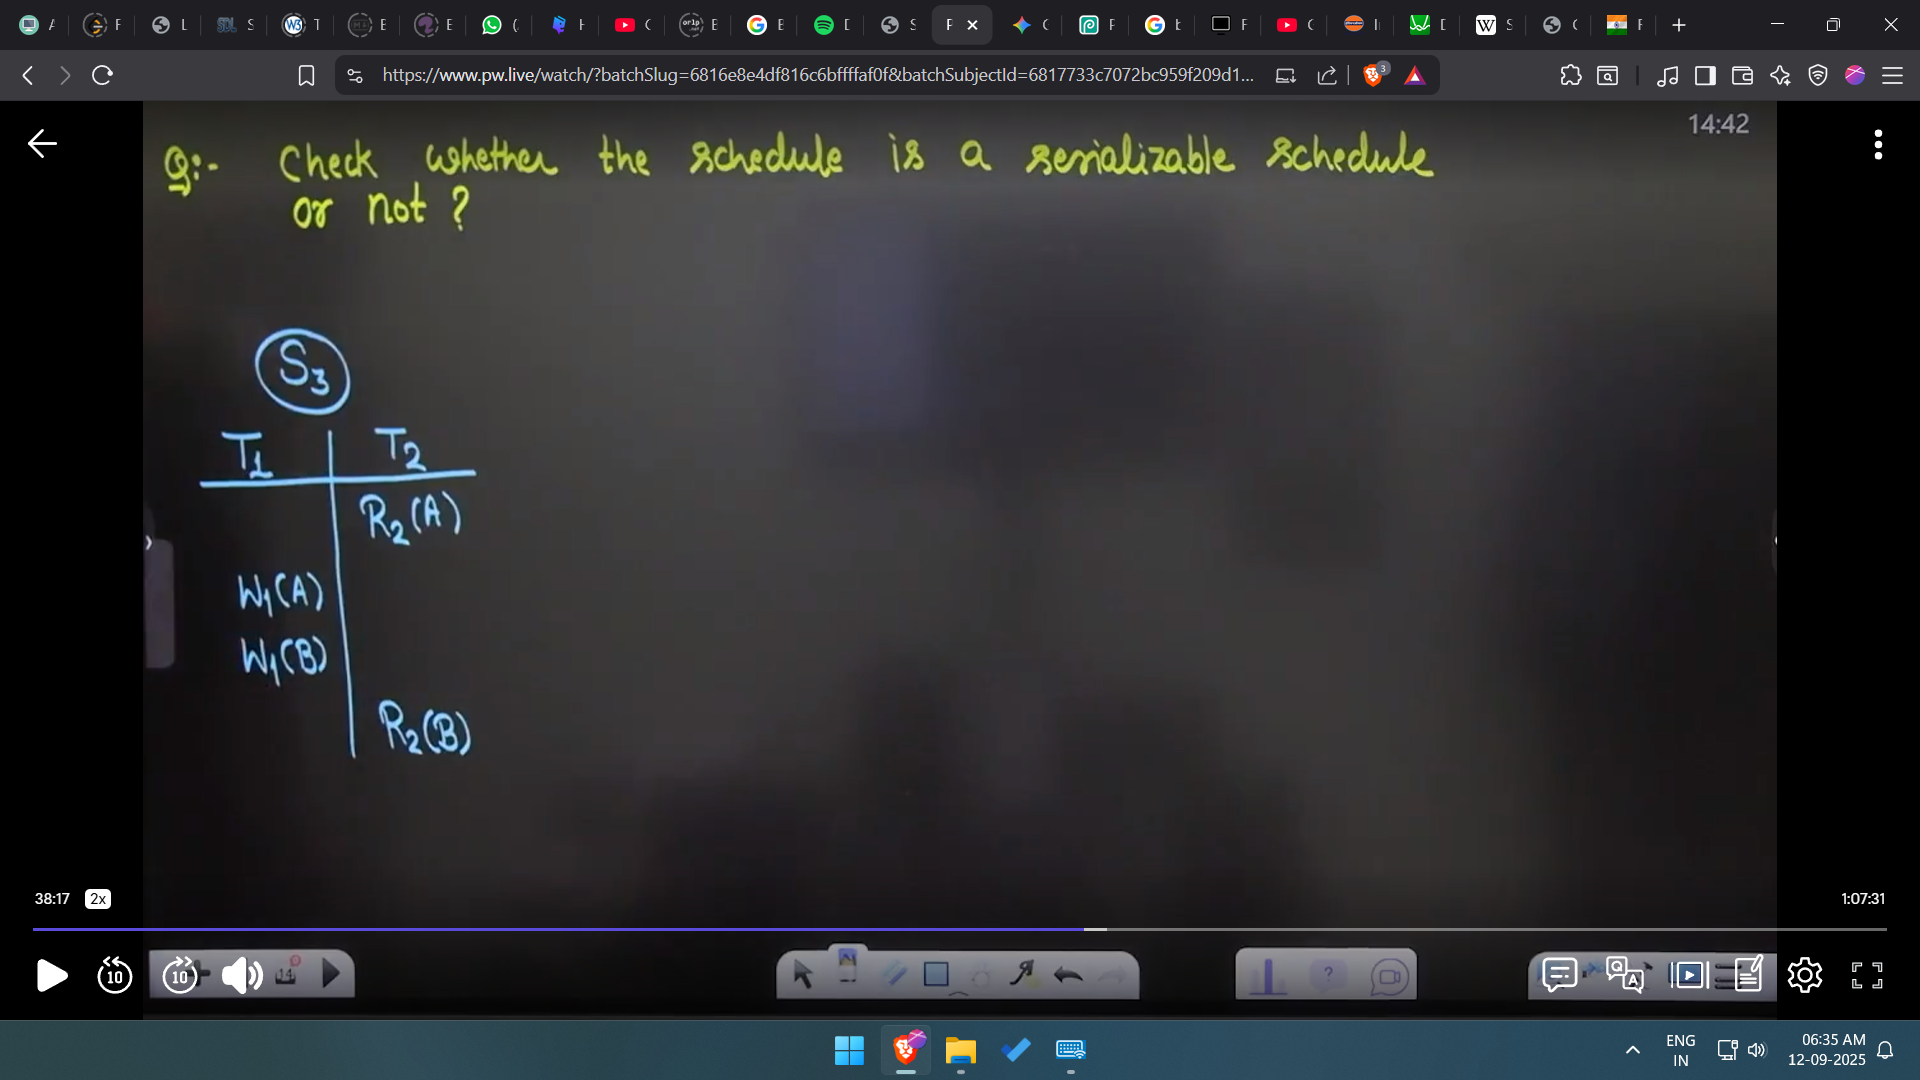 A
F
L
S
T
E
E
(
H
C
E
E
D
S
F
C
F
t
F
C
I
D
S
C
F
https://www.pw.live/watch/?batchSlug=6816e8e4df816c6bffffaf0f&batchSubjectId=6817733c7072bc959f209d1...
3
14:42
Q:- Check whether the schedule is a serializable schedule
or not ?
S3
T1 T2
R2(A)
W1(A)
W1(B)
R2(B)
38:17 2x
1:07:31
10 10 14
ENG
IN
06:35 AM
12-09-2025